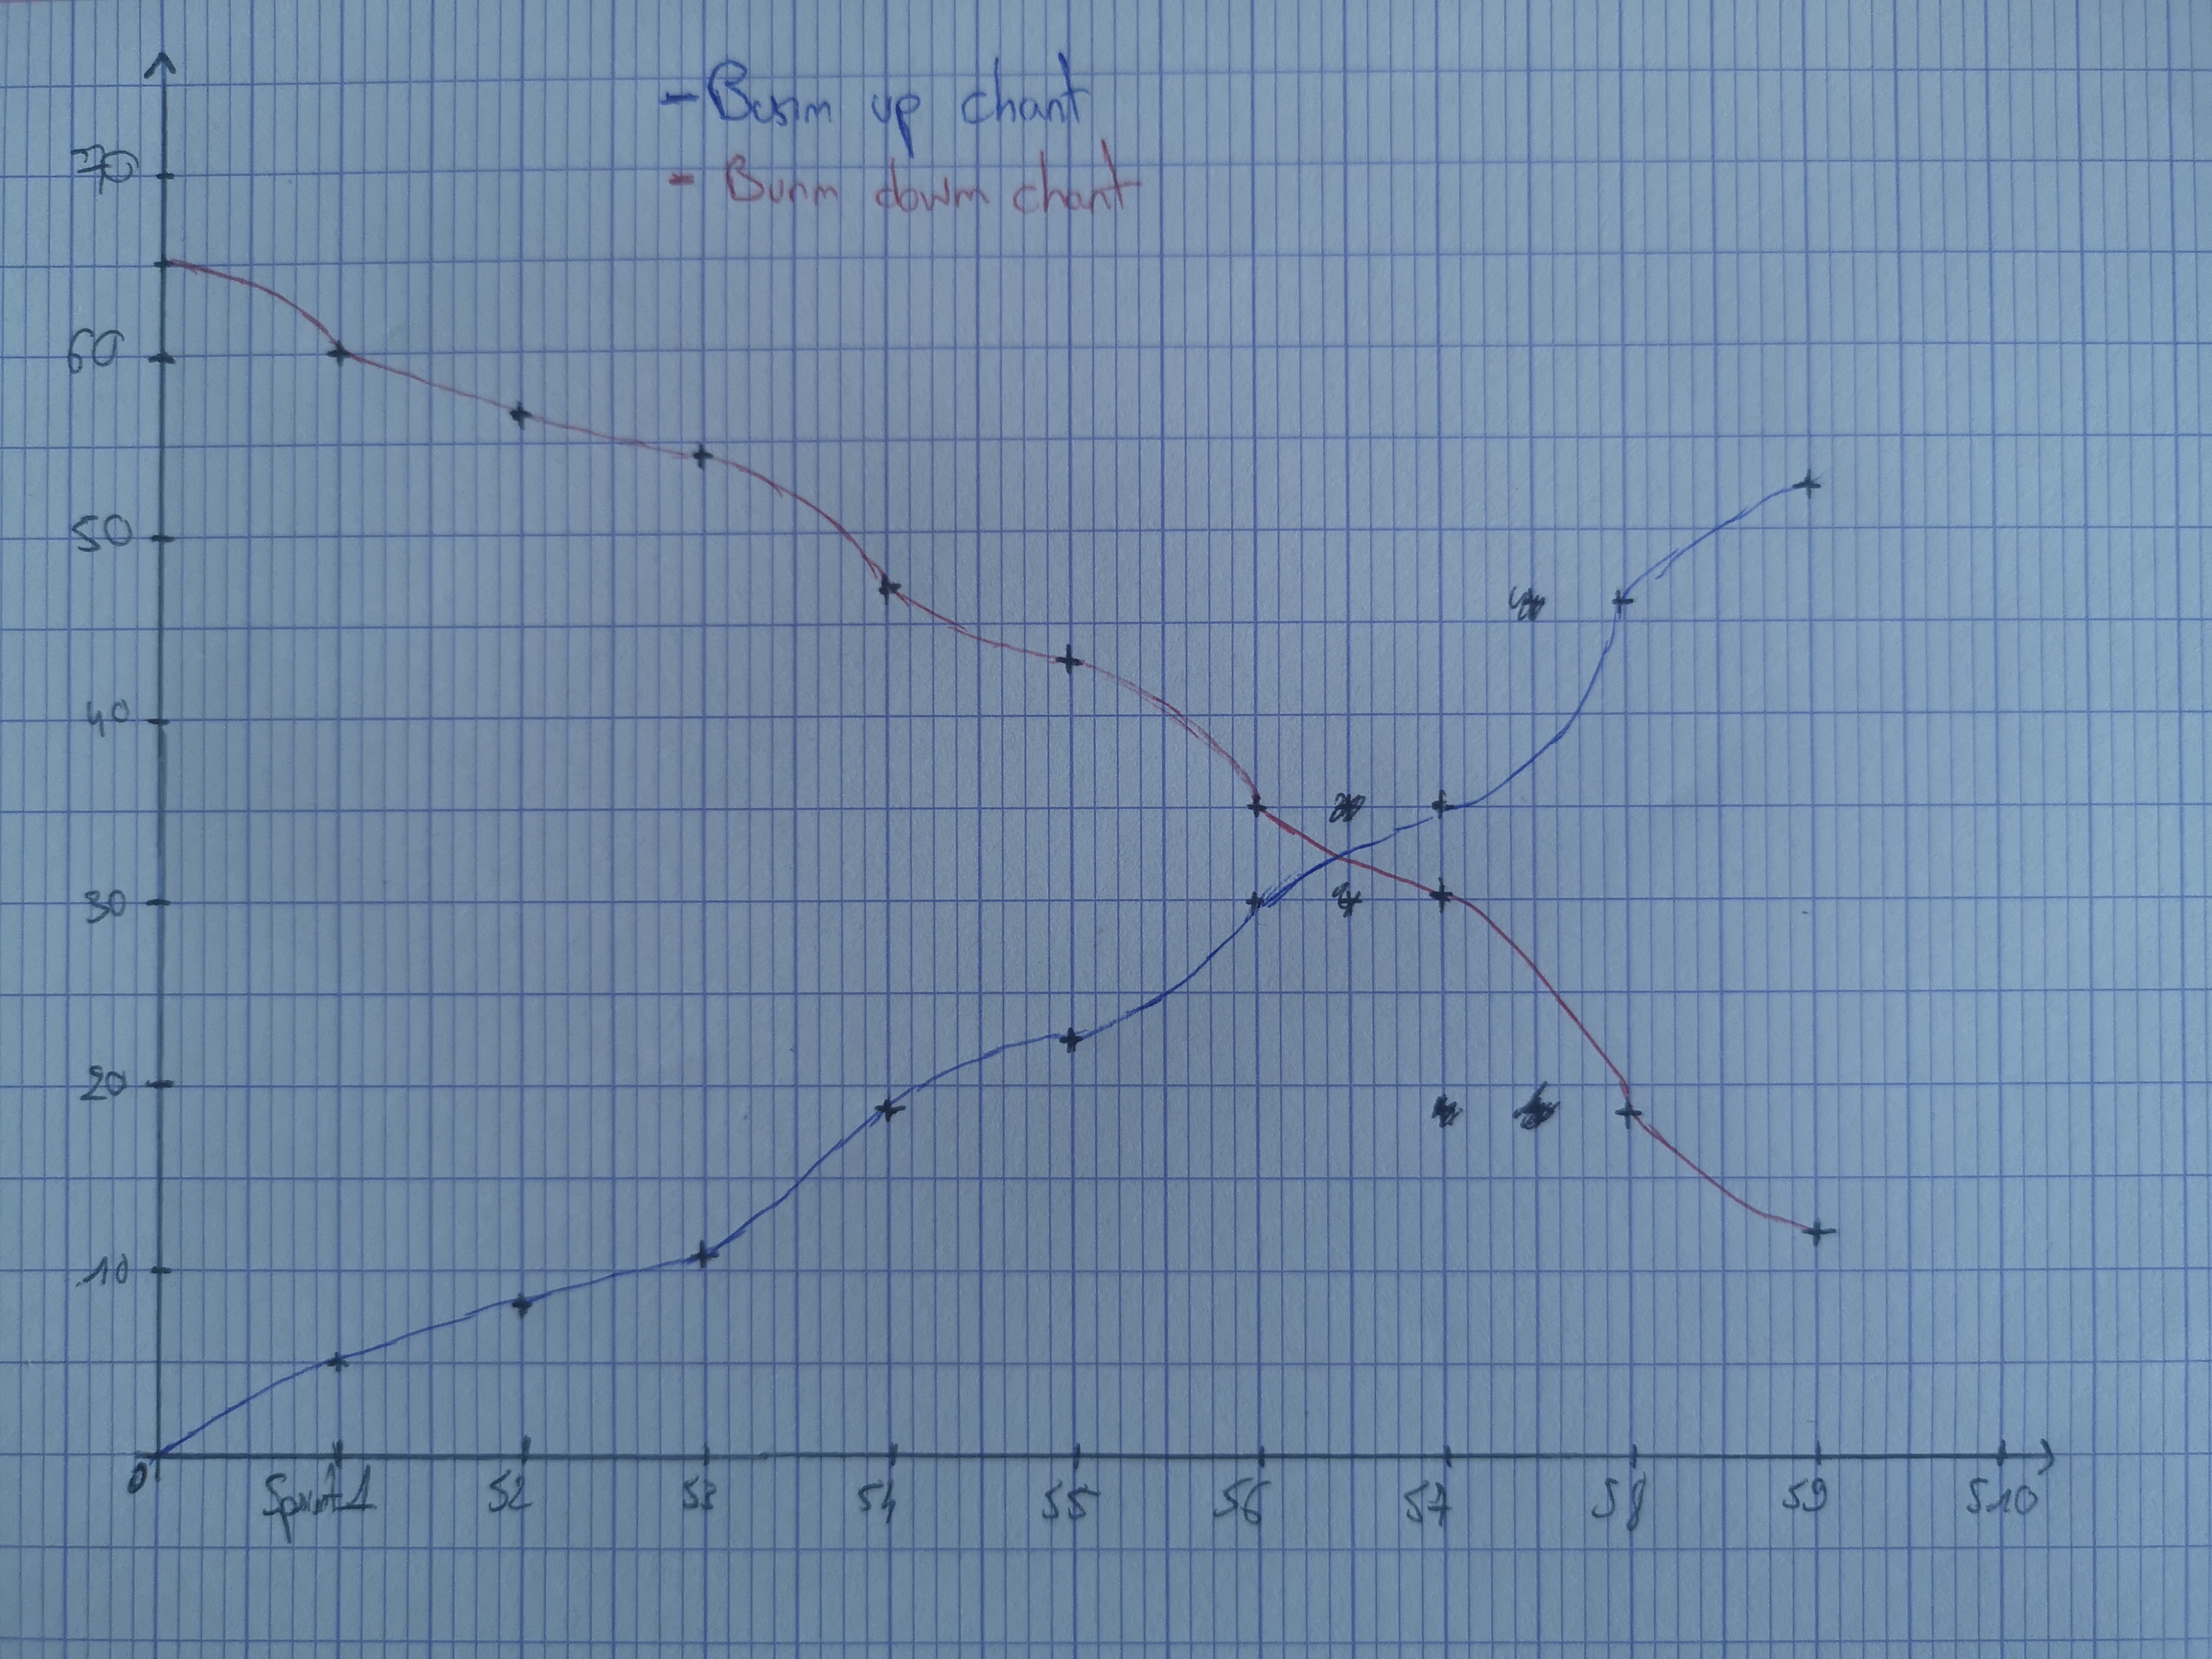 - Burn up chart
- Burn down chart
70
60
50
40
30
20
10
0
Sprint 1 S2 S3 S4 S5 S6 S7 S8 S9 S10